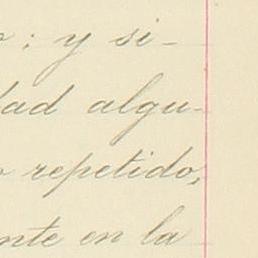 ; y si-
dad algu-
repetido,
nte en la